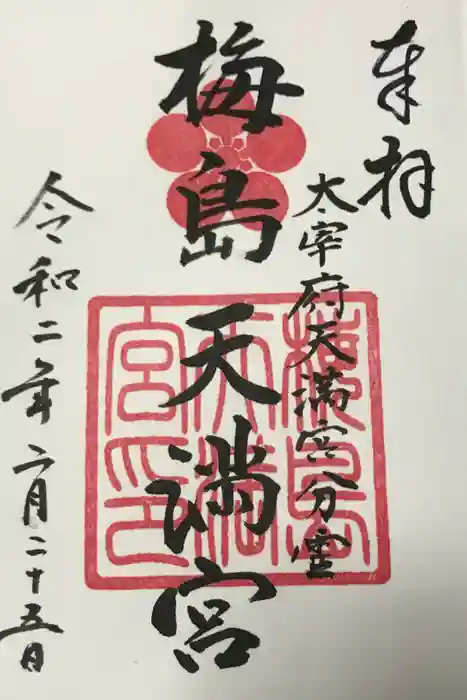 奉拝
太宰府天満宮分霊
梅島天満宮
令和二年二月二十五日
梅島
天満
宮印